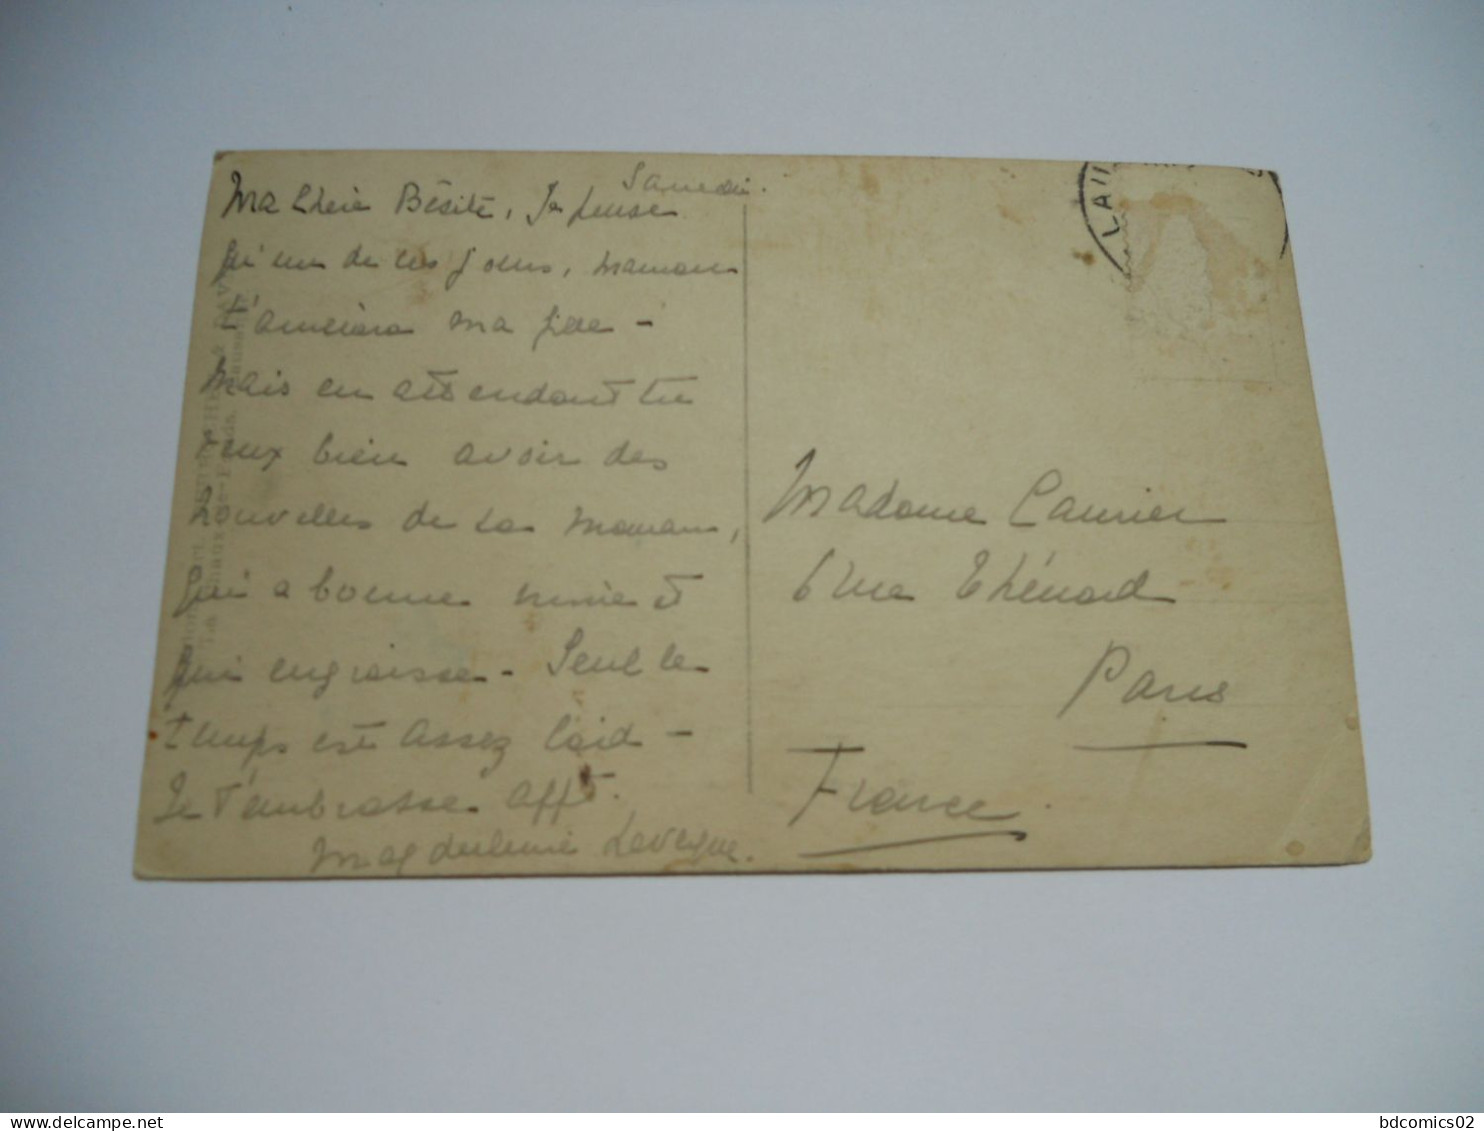 Samedi.
Ma Chérie Bésite, Je pense
qu'un de ces jours, maman
t'amènera ma fille -
Mais en attendant tu
veux bien avoir des
nouvelles de ta maman,
qui a bonne mine et
qui engraisse - Seul le
temps est assez laid -
Je t'embrasse afft.
Magdeleine Levesque.
LAU
Madame Caurier
6 rue Thénard
Paris
France.
bdcomics02